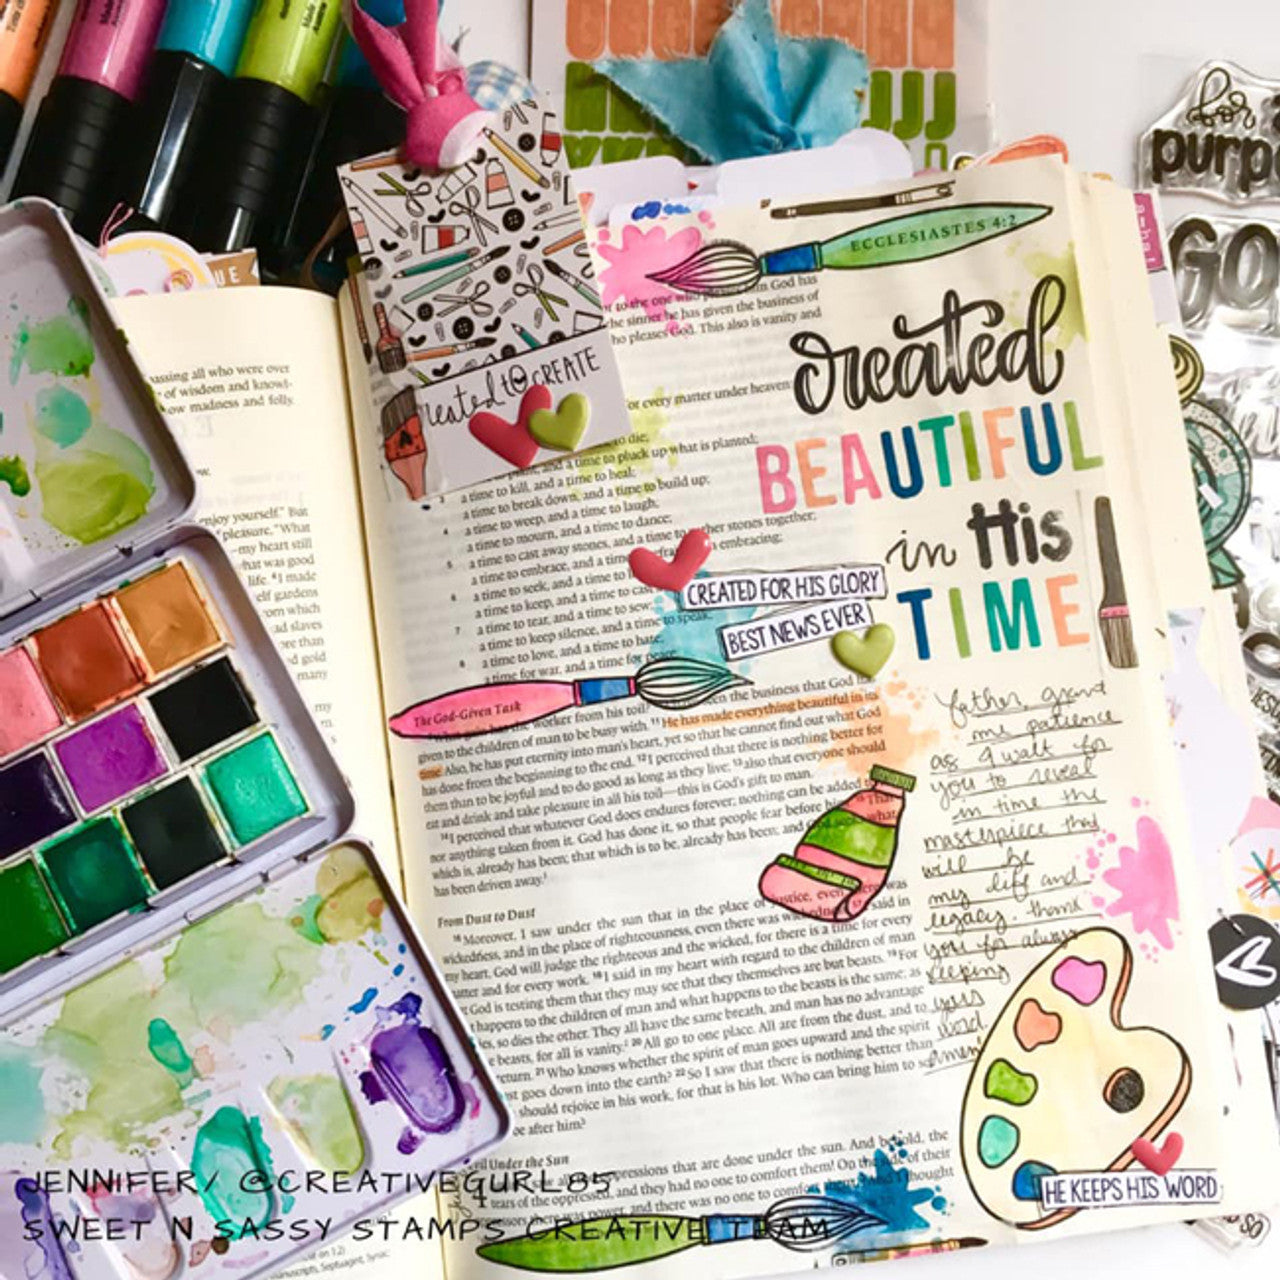 for
purp
GO
UE
assing all who were over
of wisdom and knowl-
ow madness and folly.
enjoy yourself." But
pleasure, "What
my heart still
hat was good
life. ⁴I made
elf gardens
om which
ad slaves
ore than
d gold
many
my
ECCLESIASTES 4:2
to the one who in God has
he sinner he has given the business of
ho pleases God. This also is vanity and
or every matter under heaven
created to CREATE
to die;
and a time to pluck up what is planted;
3 a time to kill, and a time to heal;
a time to break down, and a time to build up;
4 a time to weep, and a time to laugh;
a time to mourn, and a time to dance;
5 a time to cast away stones, and a time to ther stones together;
a time to embrace, and a time embracing;
6 a time to seek, and a time to
a time to keep, and a time to cas
7 a time to tear, and a time to sew;
a time to keep silence, and a time to speak;
8 a time to love, and a time to hate;
a time for war, and a time for peace.
created
BEAUTIFUL
in His
TIME
CREATED FOR HIS GLORY
BEST NEWS EVER
The God-Given Task
worker from his toil? en the business that God
given to the children of man to be busy with. ¹¹He has made everything beautiful in its
time. Also, he has put eternity into man's heart, yet so that he cannot find out what God
has done from the beginning to the end. ¹²I perceived that there is nothing better for
them than to be joyful and to do good as long as they live; ¹³also that everyone should
eat and drink and take pleasure in all his toil—this is God's gift to man.
¹⁴I perceived that whatever God does endures forever; nothing can be added
not anything taken from it. God has done it, so that people fear before him. That
which is, already has been; that which is to be, already has been; and what
has been driven away.
From Dust to Dust
¹⁶Moreover, I saw under the sun that in the place of justice, even there was
wickedness, and in the place of righteousness, even there was wickedness. said in
my heart, God will judge the righteous and the wicked, for there is a time for every
matter and for every work. ¹⁸I said in my heart with regard to the children of man
God is testing them that they may see that they themselves are but beasts. ¹⁹For
happens to the children of man and what happens to the beasts is the same; as
es, so dies the other. They all have the same breath, and man has no advantage
beasts, for all is vanity. ²⁰All go to one place. All are from the dust, and to
return. ²¹Who knows whether the spirit of man goes upward and the spirit
st goes down into the earth? ²²So I saw that there is nothing better than
should rejoice in his work, for that is his lot. Who can bring him to s
be after him?
Father, grand
me patience
as I walk for
you to reveal
in time the
masterpiece that
will be
my life and
legacy. thank
you for always
keeping
your
word.
Amen
HE KEEPS HIS WORD
vil Under the Sun
4 pressions that are done under the sun. And behold, the
tears of the oppressed, and they had no one to comfort them! On the side of their
there was no one to comfort thought
JENNIFER/ @CREATIVEGURL85
SWEET N SASSY STAMPS CREATIVE TEAM